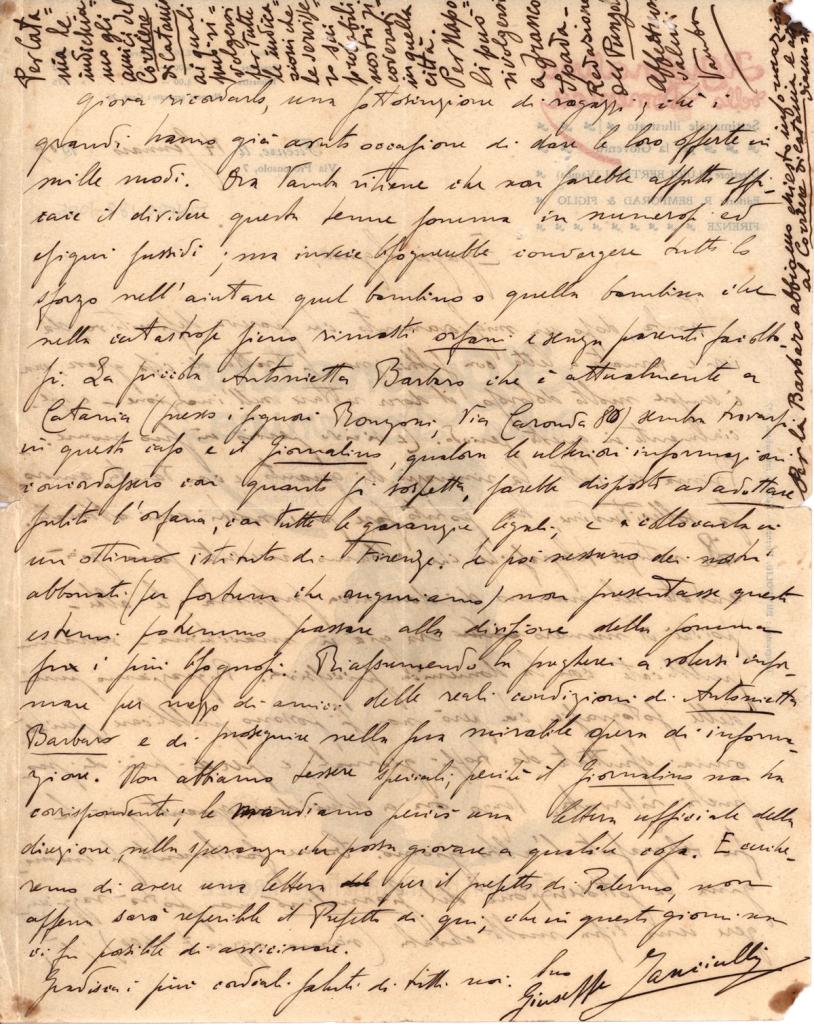 giova ricordarlo, una sottoscrizione di ragazzi, chè i
grandi hanno già avuto occasione di dare le loro offerte in
mille modi. Ora Vamba ritiene che non sarebbe affatto effi-
cace il dividere questa tenue somma in numerosi ed
esigui sussidi; ma invece bisognerebbe convergere tutto lo
sforzo nell'aiutare quel bambino o quella bambina che
nella catastrofe sieno rimasti orfani e senza parenti facolto-
si. La piccola Antonietta Barbaro che è attualmente a
Catania (presso i signori Ronzoni, Via Caronda 86) sembra trovarsi
in questo caso e il Giornalino, qualora le ulteriori informazioni
concordassero con quanto si sospetta, sarebbe disposto ad adottare
subito l'orfana, con tutte le garanzie legali, e a collocarla in
un ottimo istituto di Firenze. Se poi nessuno dei nostri
abbonati (per fortuna che auguriamo) non presentasse questi
estremi potremmo passare alla divisione della somma
fra i più bisognosi. Riassumendo la pregherei a volersi infor-
mare per mezzo di amici delle reali condizioni di Antonietta
Barbaro e di proseguire nella sua mirabile opera di informa-
zione. Non abbiamo tessere speciali, perché il Giornalino non ha
corrispondenti; le mandiamo perciò una lettera ufficiale della
direzione, nella speranza che possa giovare a qualche cosa. E cerche-
remo di avere una lettera per il prefetto di Palermo, non
appena sarà reperibile il Prefetto di qui, che in questi giorni non
ci fu possibile di avvicinare.
Gradisca i più cordiali saluti di tutti noi. Suo
Giuseppe Fanciulli
Per Cata-
nia le
indichia-
mo gli
amici del
Corriere
di Catania
ai quali
può ri-
volgersi
per tutte
le indica-
zioni che
le servisse-
ro sui
probabili
nostri ri-
coverati
in quella
città.
Per Napo-
li può
rivolgersi
a Franco
Spada-
Redazione
del Pungolo
Affettuosi
saluti
Vamba
Per la Barbaro abbiamo chiesto informazioni
al Corriere di Catania e a